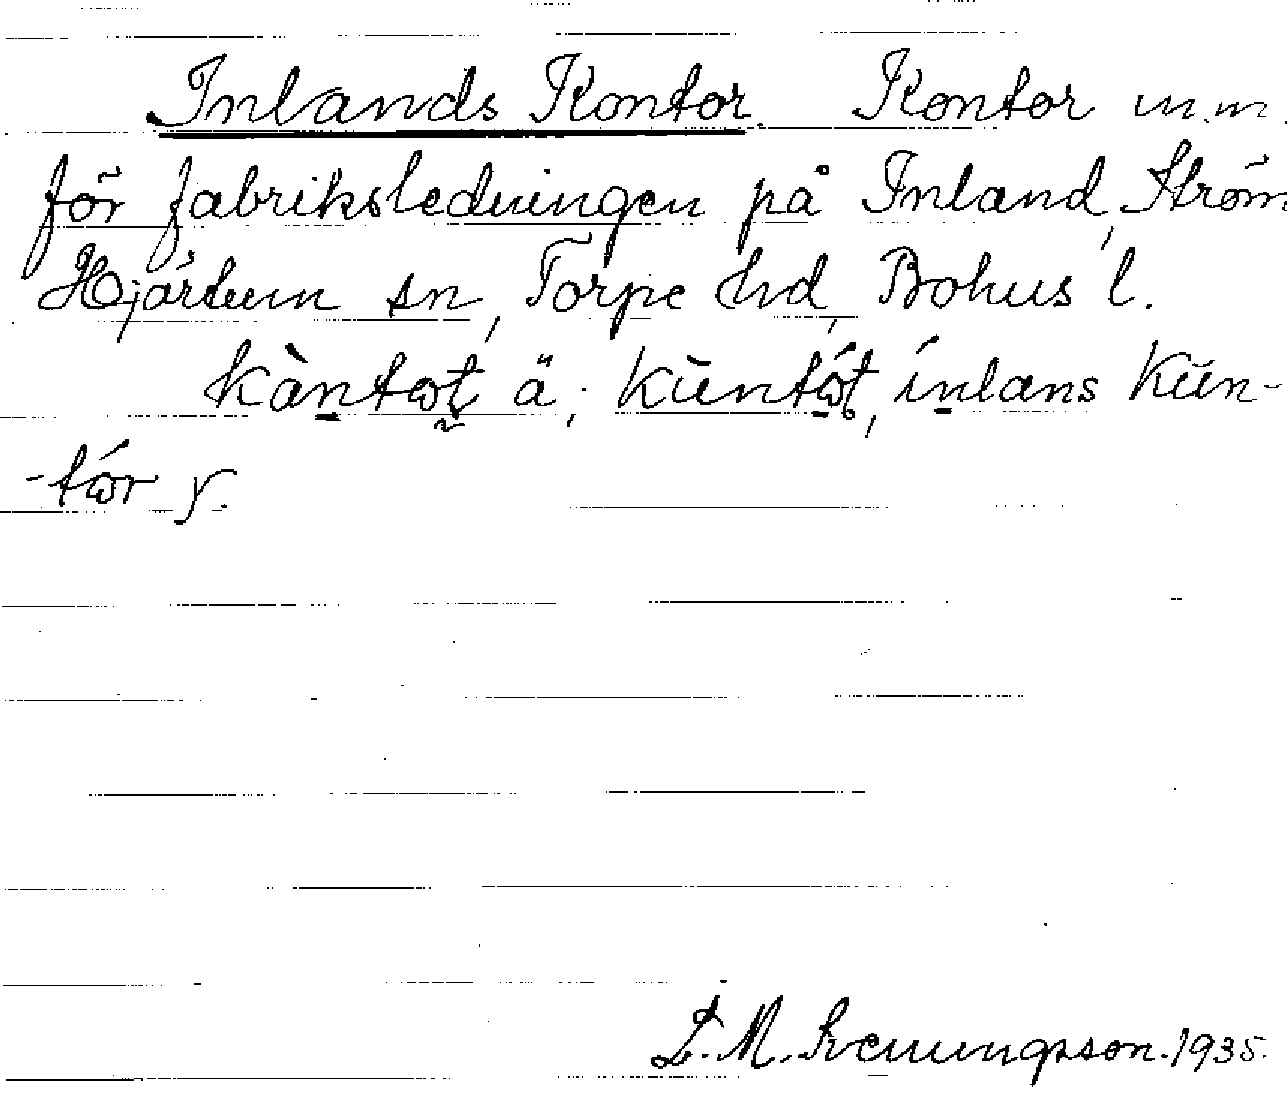 Inlands Kontor. Kontor m.m.
för fabriksledningen på Inland, Ström
Hjärtum sn, Torpe hd, Bohus l.
ä; inlans kun-
-tór y.
L. M. Svenungsson. 1935.